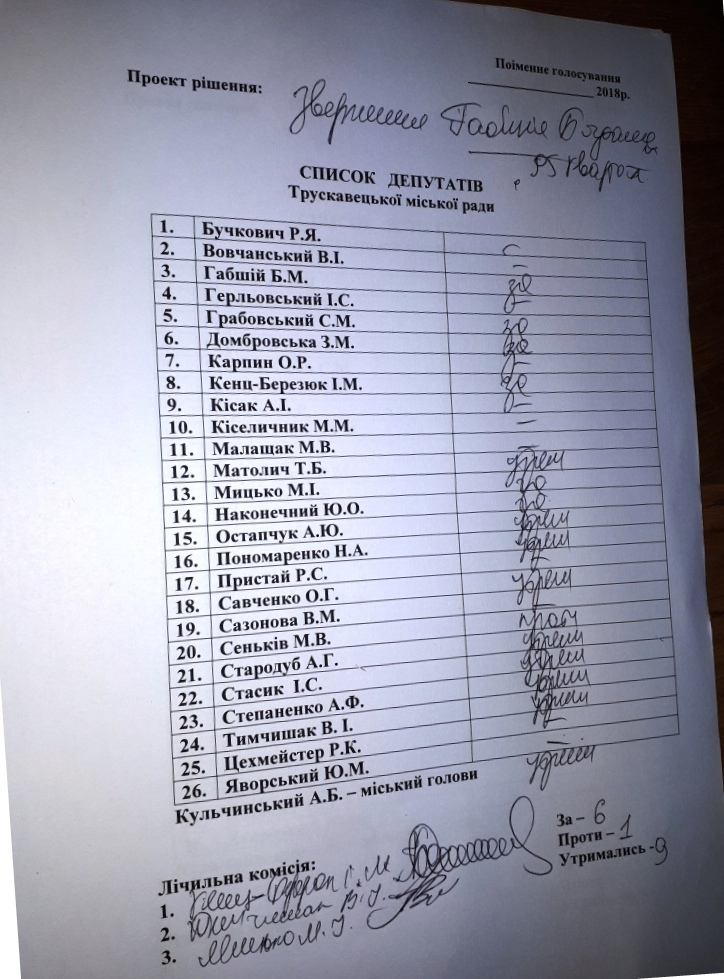 Поіменне голосування
Проект рішення: ____________ 2018р.
Звернення
95 квартал
СПИСОК ДЕПУТАТІВ
Трускавецької міської ради
1. Бучкович Р.Я.
2. Вовчанський В.І. –
3. Габшій Б.М. –
4. Герльовський І.С. за
5. Грабовський С.М. –
6. Домбровська З.М. за
7. Карпин О.Р. за
8. Кенц-Березюк І.М. –
9. Кісак А.І. за
10. Кіселичник М.М. –
11. Малащак М.В. –
12. Матолич Т.Б. –
13. Мицько М.І. утрим
14. Наконечний Ю.О. за
15. Остапчук А.Ю. за
16. Пономаренко Н.А. утрим
17. Пристай Р.С. утрим
18. Савченко О.Г. –
19. Сазонова В.М. утрим
20. Сеньків М.В. –
21. Стародуб А.Г. проти
22. Стасик І.С. утрим
23. Степаненко А.Ф. утрим
24. Тимчишак В. І. утрим
25. Цехмейстер Р.К. утрим
26. Яворський Ю.М. –
Кульчинський А.Б. – міський голови утрим
За – 6
Проти – 1
Утримались - 9
Лічильна комісія:
1.
2. Тимчишак В.І.
3. Мицько М.І.